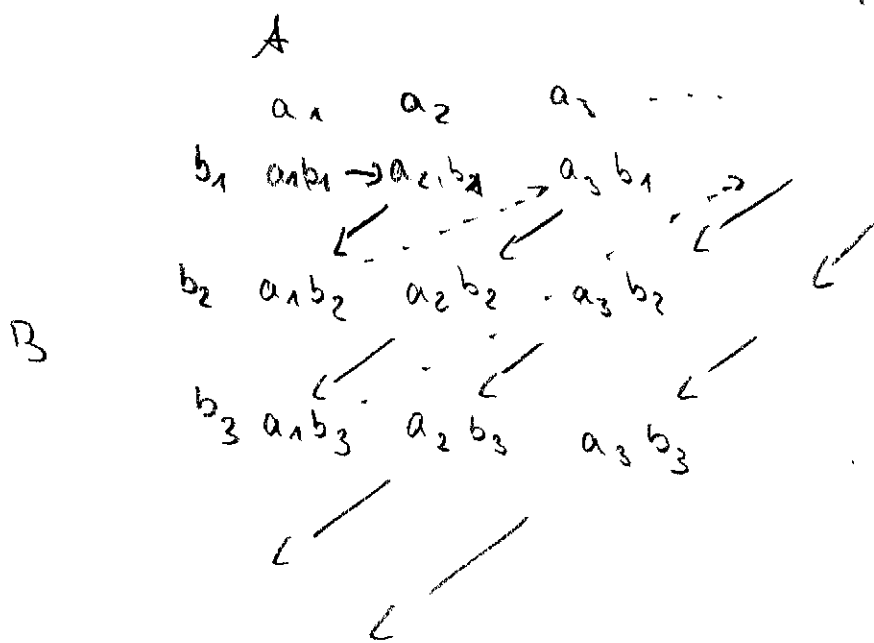 A
a1 a2 a3 ...
b1 a1b1 → a2b1 a3b1
b2 a1b2 a2b2 a3b2
B
b3 a1b3 a2b3 a3b3